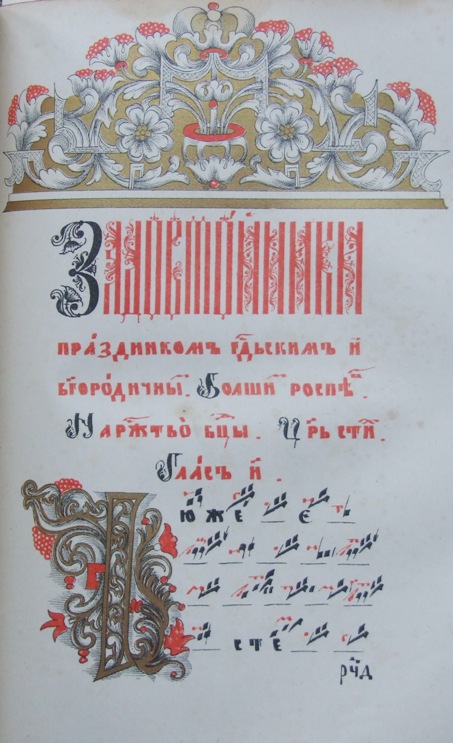 Задостойники
пра́здникомъ гдⷭ҇ьскимъ и҆
бг҃оро́дичны. Болши роспѣⷡ҇.
На рж҃тьо бц҃ы.
Гла́съ и҃.
Чюже е
сте